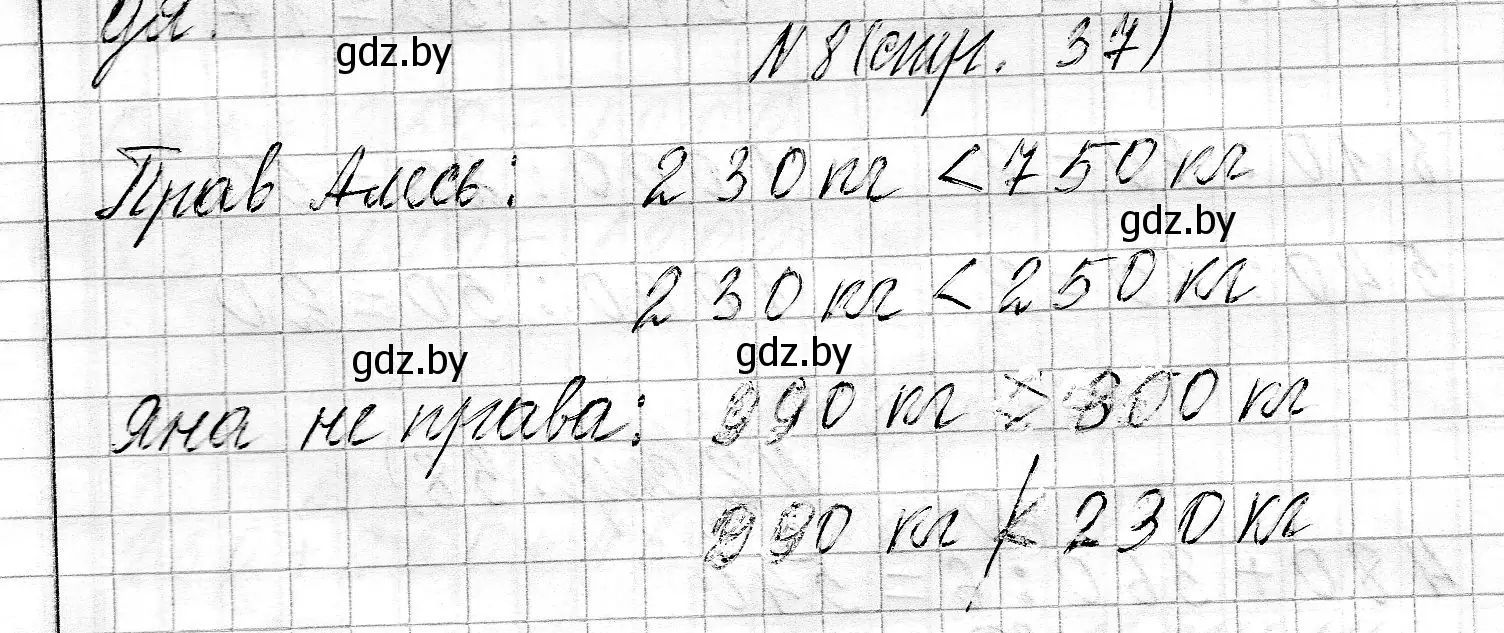 gdz.by
N 8 (стр. 37)
Прав Алесь: 230 кг < 750 кг
gdz.by
230 кг < 250 кг
gdz.by gdz.by
Яна не права: 990 кг > 800 кг
990 кг < 230 кг